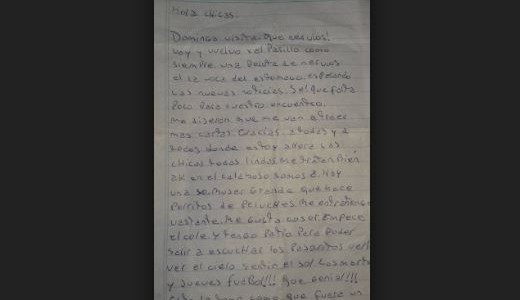 Hola chicas:
Domingo visita. Que nervios!
Voy y vuelvo x el Pasillo como
siempre una Pelota de nervios
en la voca del estomago. esperando
las nuevas noticias. Se que falta
Poco Para nuestro encuentro.
Me dijeron que me van a traer
mas cartas. Gracias a todas y a
todos donde estoy ahora las
chicas todas lindas me tratan Bien
aki en el calabozo somos 2. Hay
una Mujer Grande que hace
Perritos de Peluches. Me entretengo
vastante. Me Gusta coser Empece
el cole y tengo Patio Para Poder
salir a escuchar los Pajaritos
ver el cielo sentir el sol. Los martes
y Jueves futbol!!! Que genial!!!
como que fuera un